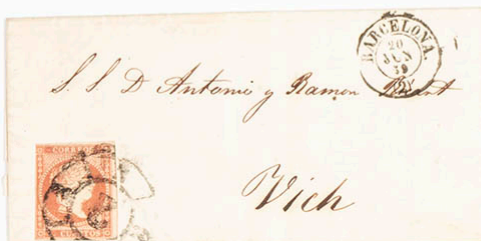 BARCELONA.
20
JUN
59
S. S. D Antonio y Ramon
Vich
CORREOS
CUARTOS